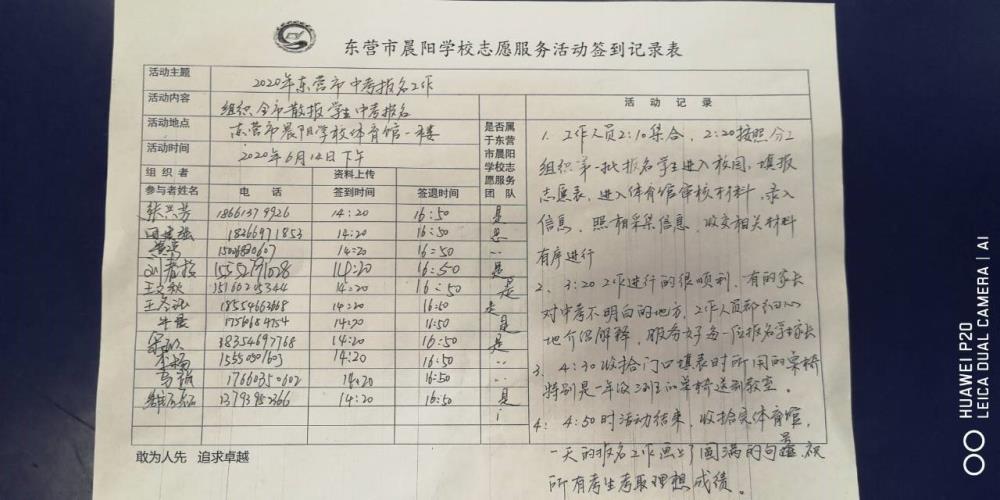 东营市晨阳学校志愿服务活动签到记录表
活动主题 2020年东营市中考报名工作
活动内容 组织全市散报学生中考报名
活动地点 东营市晨阳学校体育馆一楼
活动时间 2020年6月14日下午
组织者 资料上传
参与者姓名 电话 签到时间 签退时间
是否属于东营市晨阳学校志愿服务团队
张兴芳 18661379926 14:20 16:50 是
18266971853 14:20 16:50 是
14:20 16:50 ..
14:20 16:50 是
15160205344 14:20 16:50 是
18554663668 14:20 16:50 是
牛 14:20 16:50 是
18354697768 14:20 16:50 是
14:20 16:50 ..
17660350602 14:20 16:50 ..
13793982366 14:20 16:50 是
活动记录
1. 工作人员2:10集合，2:20按照分工
组织第一批报名学生进入校园，填报
志愿表，进入体育馆审核材料，录入
信息，照相采集信息，收交相关材料
有序进行
2、3:20工作进行的很顺利，有的家长
对中考不明白的地方，工作人员都细心
地介绍解释，服务好每一位报名学生家长
3、4:30收拾门口填表时所用的桌椅
特别是一年级的单椅送到教室。
4、4:50时活动结束，收拾完体育馆，
一天的报名工作画上了圆满的句号，祝
所有考生考取理想成绩。
敢为人先 追求卓越
HUAWEI P20
LEICA DUAL CAMERA | AI